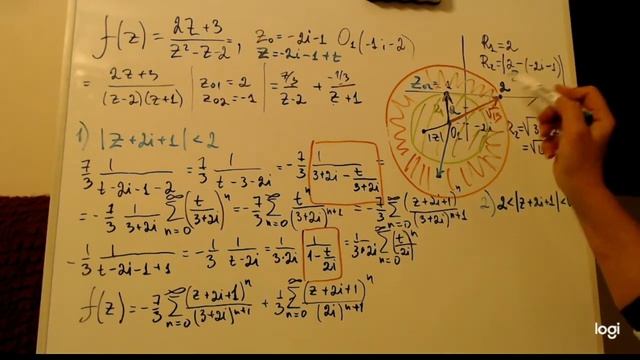 f(z) = (2z+3)/(z²-z-2); z₀ = -2i-1 O₁(-1; -2)
z = -2i-1+t
= (2z+3)/((z-2)(z+1)) | z₀₁ = 2 z₀₂ = -1 | = (7/3)/(z-2) + (-1/3)/(z+1)
R₁ = 2
R₂ = |2-(-2i-1)|
R₂ = √
= √
z₀₂ = 2
√13
|z| O₁ -2i
1) |z+2i+1| < 2
7/3 1/(t-2i-1-2) = 7/3 1/(t-3-2i) = -7/3 1/(3+2i - t/(3+2i)) =
= -7/3 1/(3+2i) ∑_{n=0}^∞ (t/(3+2i))ⁿ = -7/3 ∑_{n=0}^∞ tⁿ/(3+2i)ⁿ⁺¹ = -7/3 ∑_{n=0}^∞ (z+2i+1)ⁿ/(3+2i)ⁿ⁺¹
2) 2<|z+2i+1|<
-1/3 1/(t-2i-1+1) = -1/3 1/(t-2i) = 1/(3·2i) 1/(1-t/2i) = 1/(3·2i) ∑_{n=0}^∞ (t/2i)ⁿ
f(z) = -7/3 ∑_{n=0}^∞ (z+2i+1)ⁿ/(3+2i)ⁿ⁺¹ + 1/3 ∑_{n=0}^∞ (z+2i+1)ⁿ/(2i)ⁿ⁺¹
logi